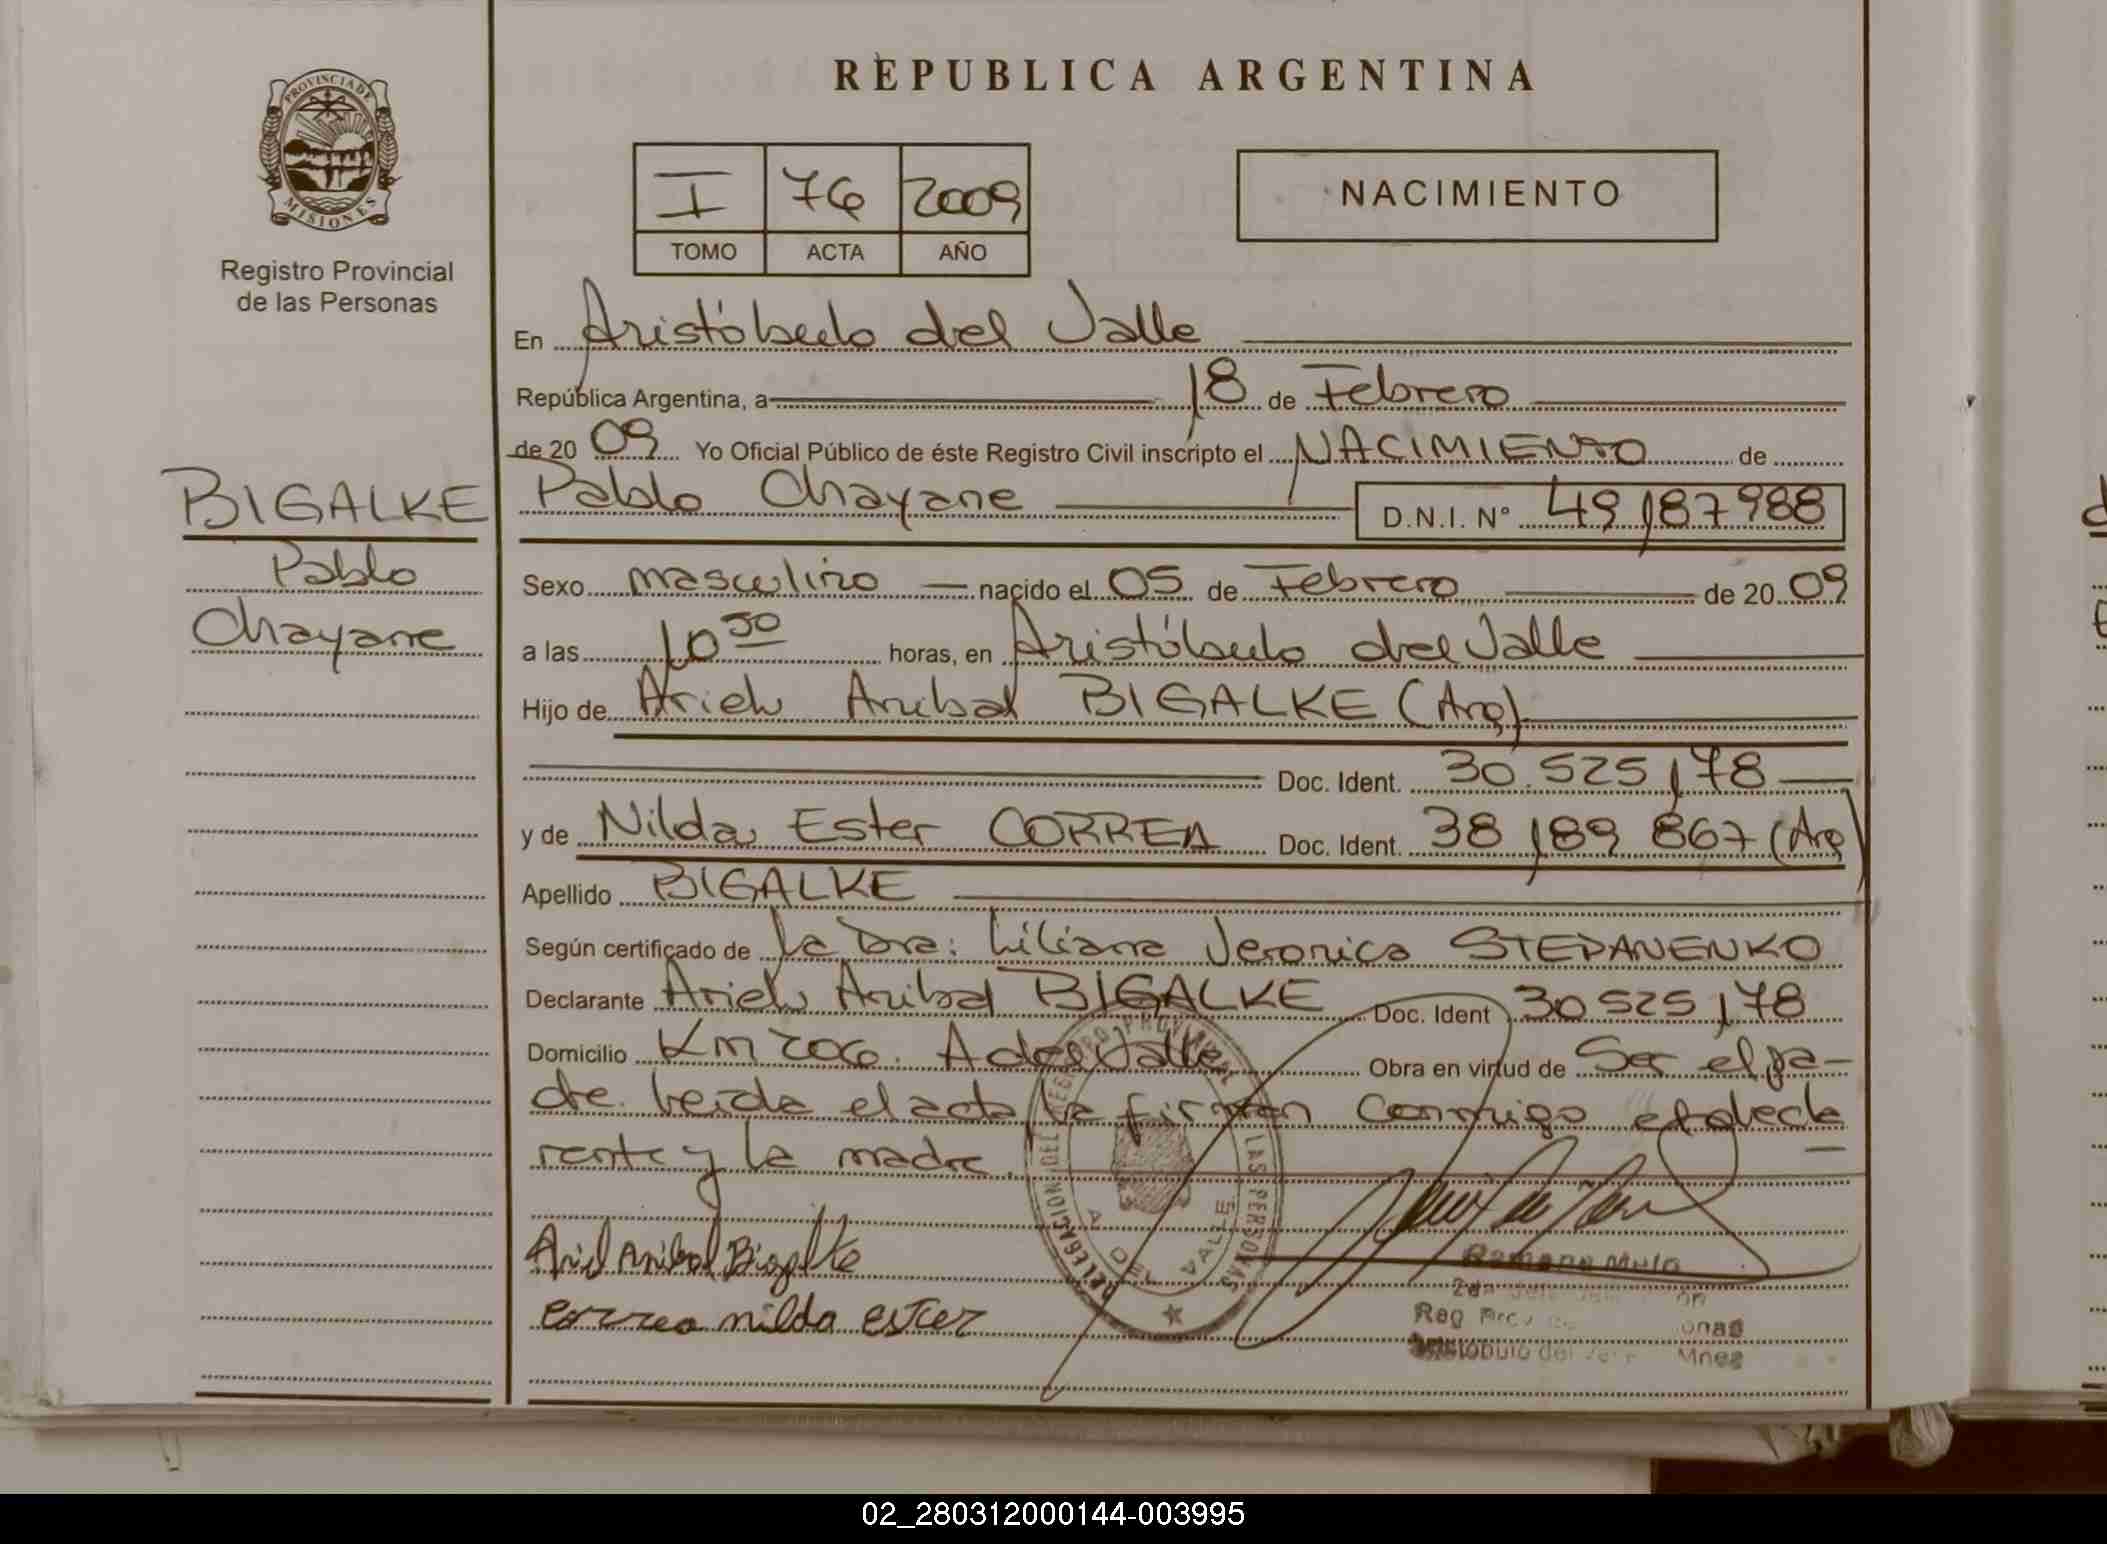 REPUBLICA ARGENTINA
PROVINCIA DE
MISIONES
Registro Provincial
de las Personas
I 76 2009
TOMO ACTA AÑO
NACIMIENTO
En Aristóbulo del Valle
República Argentina, a 18 de Febrero
de 20 09 Yo Oficial Público de éste Registro Civil inscripto el NACIMIENTO de
BIGALKE
Pablo
Chayane
Pablo Chayane D.N.I. N° 49 187 988
Sexo masculino nacido el 05 de Febrero de 20 09
a las 10 50 horas, en Aristóbulo del Valle
Hijo de Ariel Anibal BIGALKE (Arg)
Doc. Ident. 30.525 178
y de Nilda Ester CORREA Doc. Ident. 38 189 867 (Arg)
Apellido BIGALKE
Según certificado de la Dra: Liliana Veronica STEPANENKO
Declarante Ariel Anibal BIGALKE Doc. Ident 30 525 178
Domicilio Km 206. A del Valle Obra en virtud de Ser el pa-
dre. Leida el acta la firman conmigo el decla
rente y la madre.
DELEGACION DEL REGISTRO PROVINCIAL LAS PERSONAS
A DEL VALLE
Ariel Anibal Bigalke
correa nilda ester
Reg
Aristobulo del Mnes
02_280312000144-003995